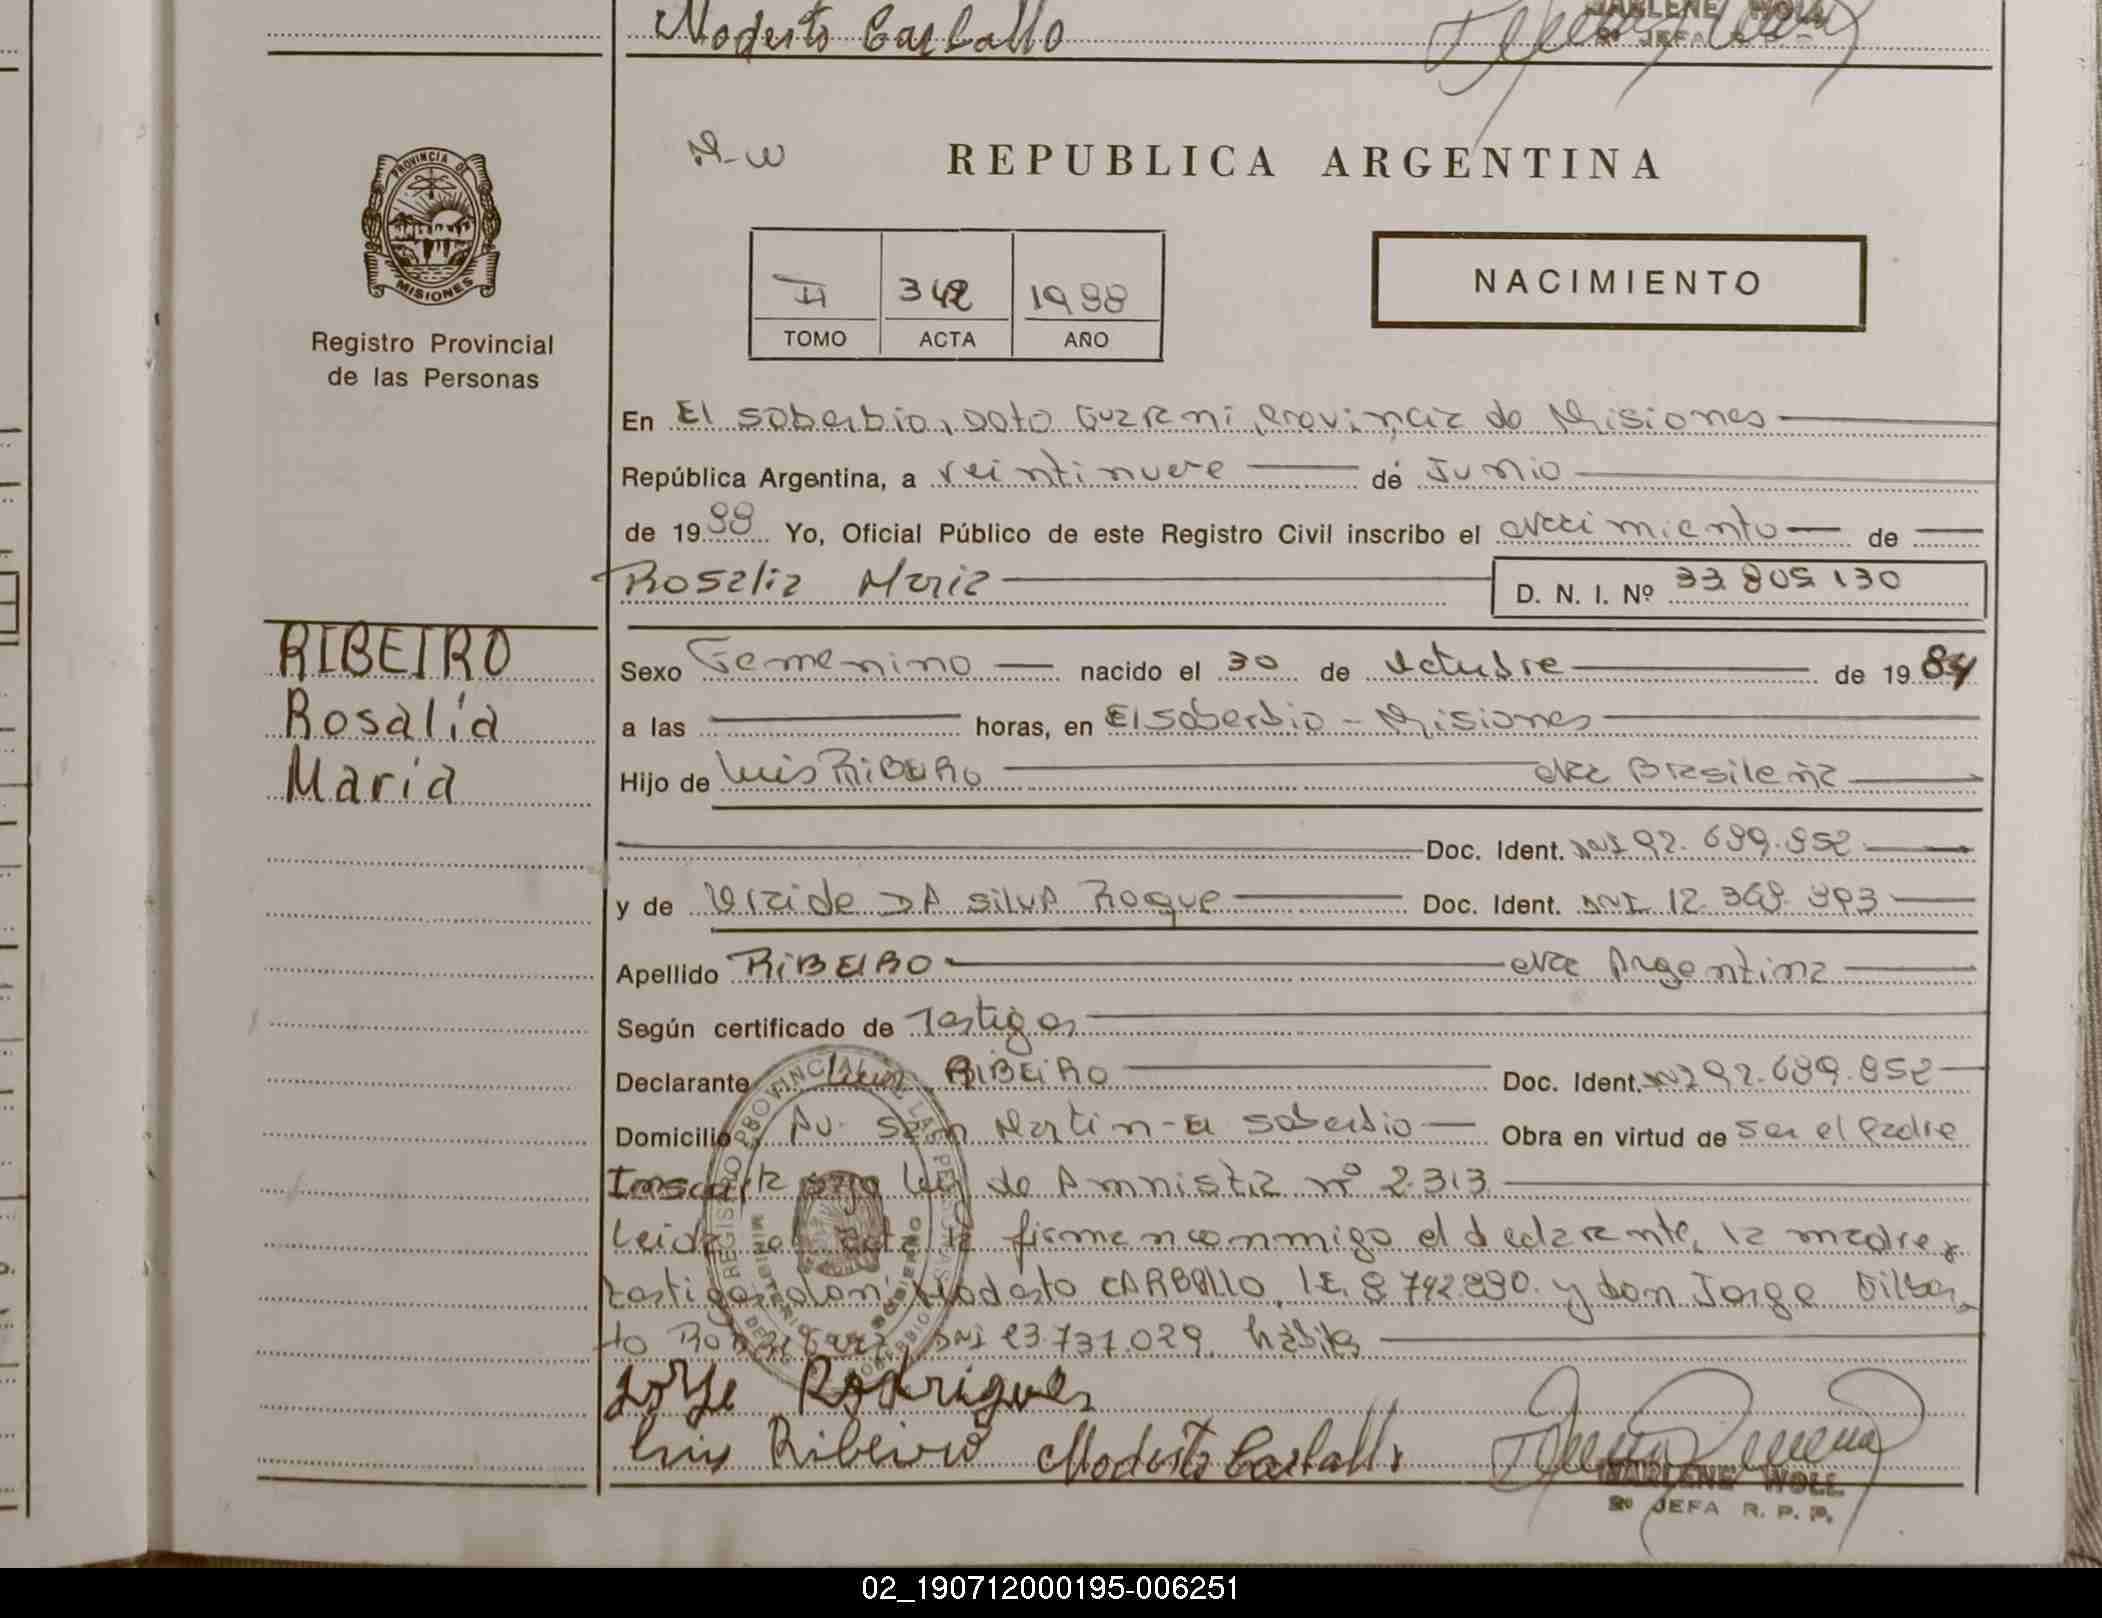 Modesto Carballo
MARLENE WOLL
2º JEFA R. P. P.
PROVINCIA DE
MISIONES
Registro Provincial
de las Personas
M-W
REPUBLICA ARGENTINA
II 342 1988
TOMO ACTA AÑO
NACIMIENTO
En El Soberbio, Dpto Guarani, Provincia de Misiones
República Argentina, a veintinueve de Junio
de 1988 Yo, Oficial Público de este Registro Civil inscribo el Nacimiento de
Rosalia Maria D. N. I. Nº 33.809.130
RIBEIRO
Rosalia
Maria
Sexo Femenino nacido el 30 de Octubre de 1984
a las horas, en El Soberbio - Misiones
Hijo de Luis RIBEIRO Nac Brasileña
Doc. Ident. DNI 92.689.852
y de DA SILVA Roque Doc. Ident. DNI 12.368.893
Apellido RIBEIRO Nac Argentina
Según certificado de Testigos
Declarante Luis RIBEIRO Doc. Ident. DNI 92.689.852
Domicilio Av. San Martin - El Soberbio Obra en virtud de ser el Padre
Inscripta bajo Ley de Amnistia nº 2.313
Leida el acta la firman conmigo el declarante, la madre y
testigos don Modesto CARBALLO, I.E. 8.742.890. y don Jorge Gilber
to DNI 23.731.029, habiles
Jorge Rodrigues
Luis Ribeiro Modesto Carballo
MARLENE WOLL
2º JEFA R. P. P.
02_190712000195-006251